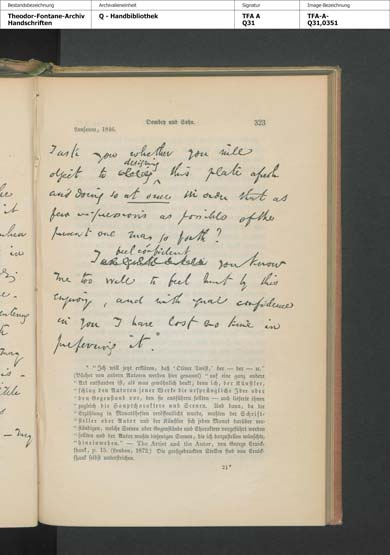 Bestandsbezeichnung
Theodor-Fontane-Archiv
Handschriften
Archivalieneinheit
Q - Handbibliothek
Signatur
TFA A
Q31
Image-Bezeichnung
TFA-A-
Q31,0351
Dombey und Sohn. 323
Lausanne, 1846.
I ask you whether you will
designing
object to this plate afresh
and doing so at once in order that as
few impressions as possible of the
present one may go forth?
feel confident
I you know
me too well to feel hurt by this
enquiry, and with equal confidence
in you I have lost no time in
preferring it.
* "Ich will jetzt erklären, daß 'Oliver Twist,' der — der — u."
(Bücher von andern Autoren werden hier genannt) "auf eine ganz andere
"Art entstanden ist, als man gewöhnlich denkt; denn ich, der Künstler,
"schlug den Autoren jener Werke die ursprüngliche Idee oder
"den Gegenstand vor, den sie ausführen sollten — und lieferte ihnen
"zugleich die Hauptcharaktere und Scenen. Und dann, da die
"Erzählung in Monatsheften veröffentlicht wurde, mußten der Schrift-
"steller oder Autor und der Künstler sich jeden Monat darüber ver-
"ständigen, welche Scenen oder Gegenstände und Charaktere vorgeführt werden
"sollten und der Autor mußte diejenigen Scenen, die ich darzustellen wünschte,
"hineinweben." — The Artist and the Author, von George Cruik-
shank, p. 15. (London, 1872.) Die großgedruckten Stellen sind von Cruik-
shank selbst unterstrichen.
21*